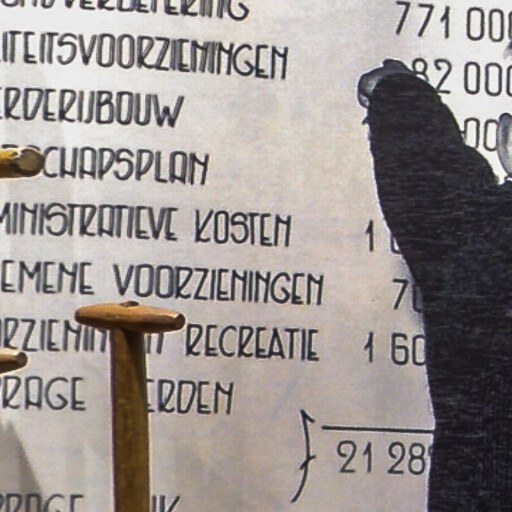 771 00
ITEITSVOORZIENINGEN 82 000
ERDERIJBOUW 00
SCHAPSPLAN
MINISTRATIEVE KOSTEN 1
EMENE VOORZIENINGEN 7
RZIENIN RECREATIE 1 60
RAGE ERDEN
21 28